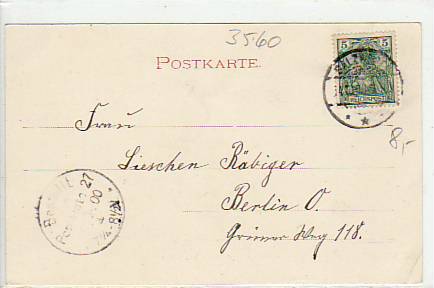 3560
POSTKARTE.
5 5
REICHSPOST
Frau
Lieschen Räbiger
Berlin O.
Grüner Weg 118.
8,-
27
00